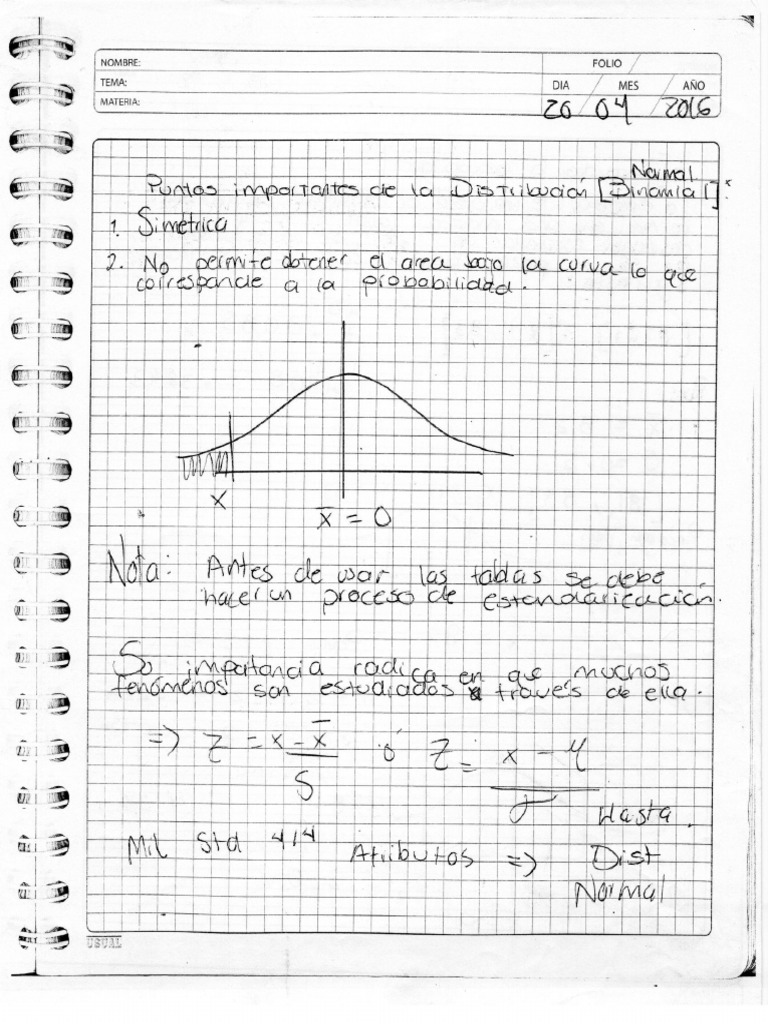 NOMBRE:
FOLIO
TEMA:
DIA MES AÑO
MATERIA:
20 04 2016
Normal
Puntos importantes de la Distribución [Binomial]:
1. Simétrica
2. No permite obtener el area bajo la curva lo que
corresponde a la probabilidad.
X
x̄ = 0
Nota: Antes de usar las tablas se debe
hacer un proceso de estandarización.
So importancia radica en que muchos
fenómenos son estudiados a través de ella.
=> Z = x - x̄ / S ó Z = x - μ / σ
Hasta.
Mil Std 414 Atributos => Dist
Normal
USUAL